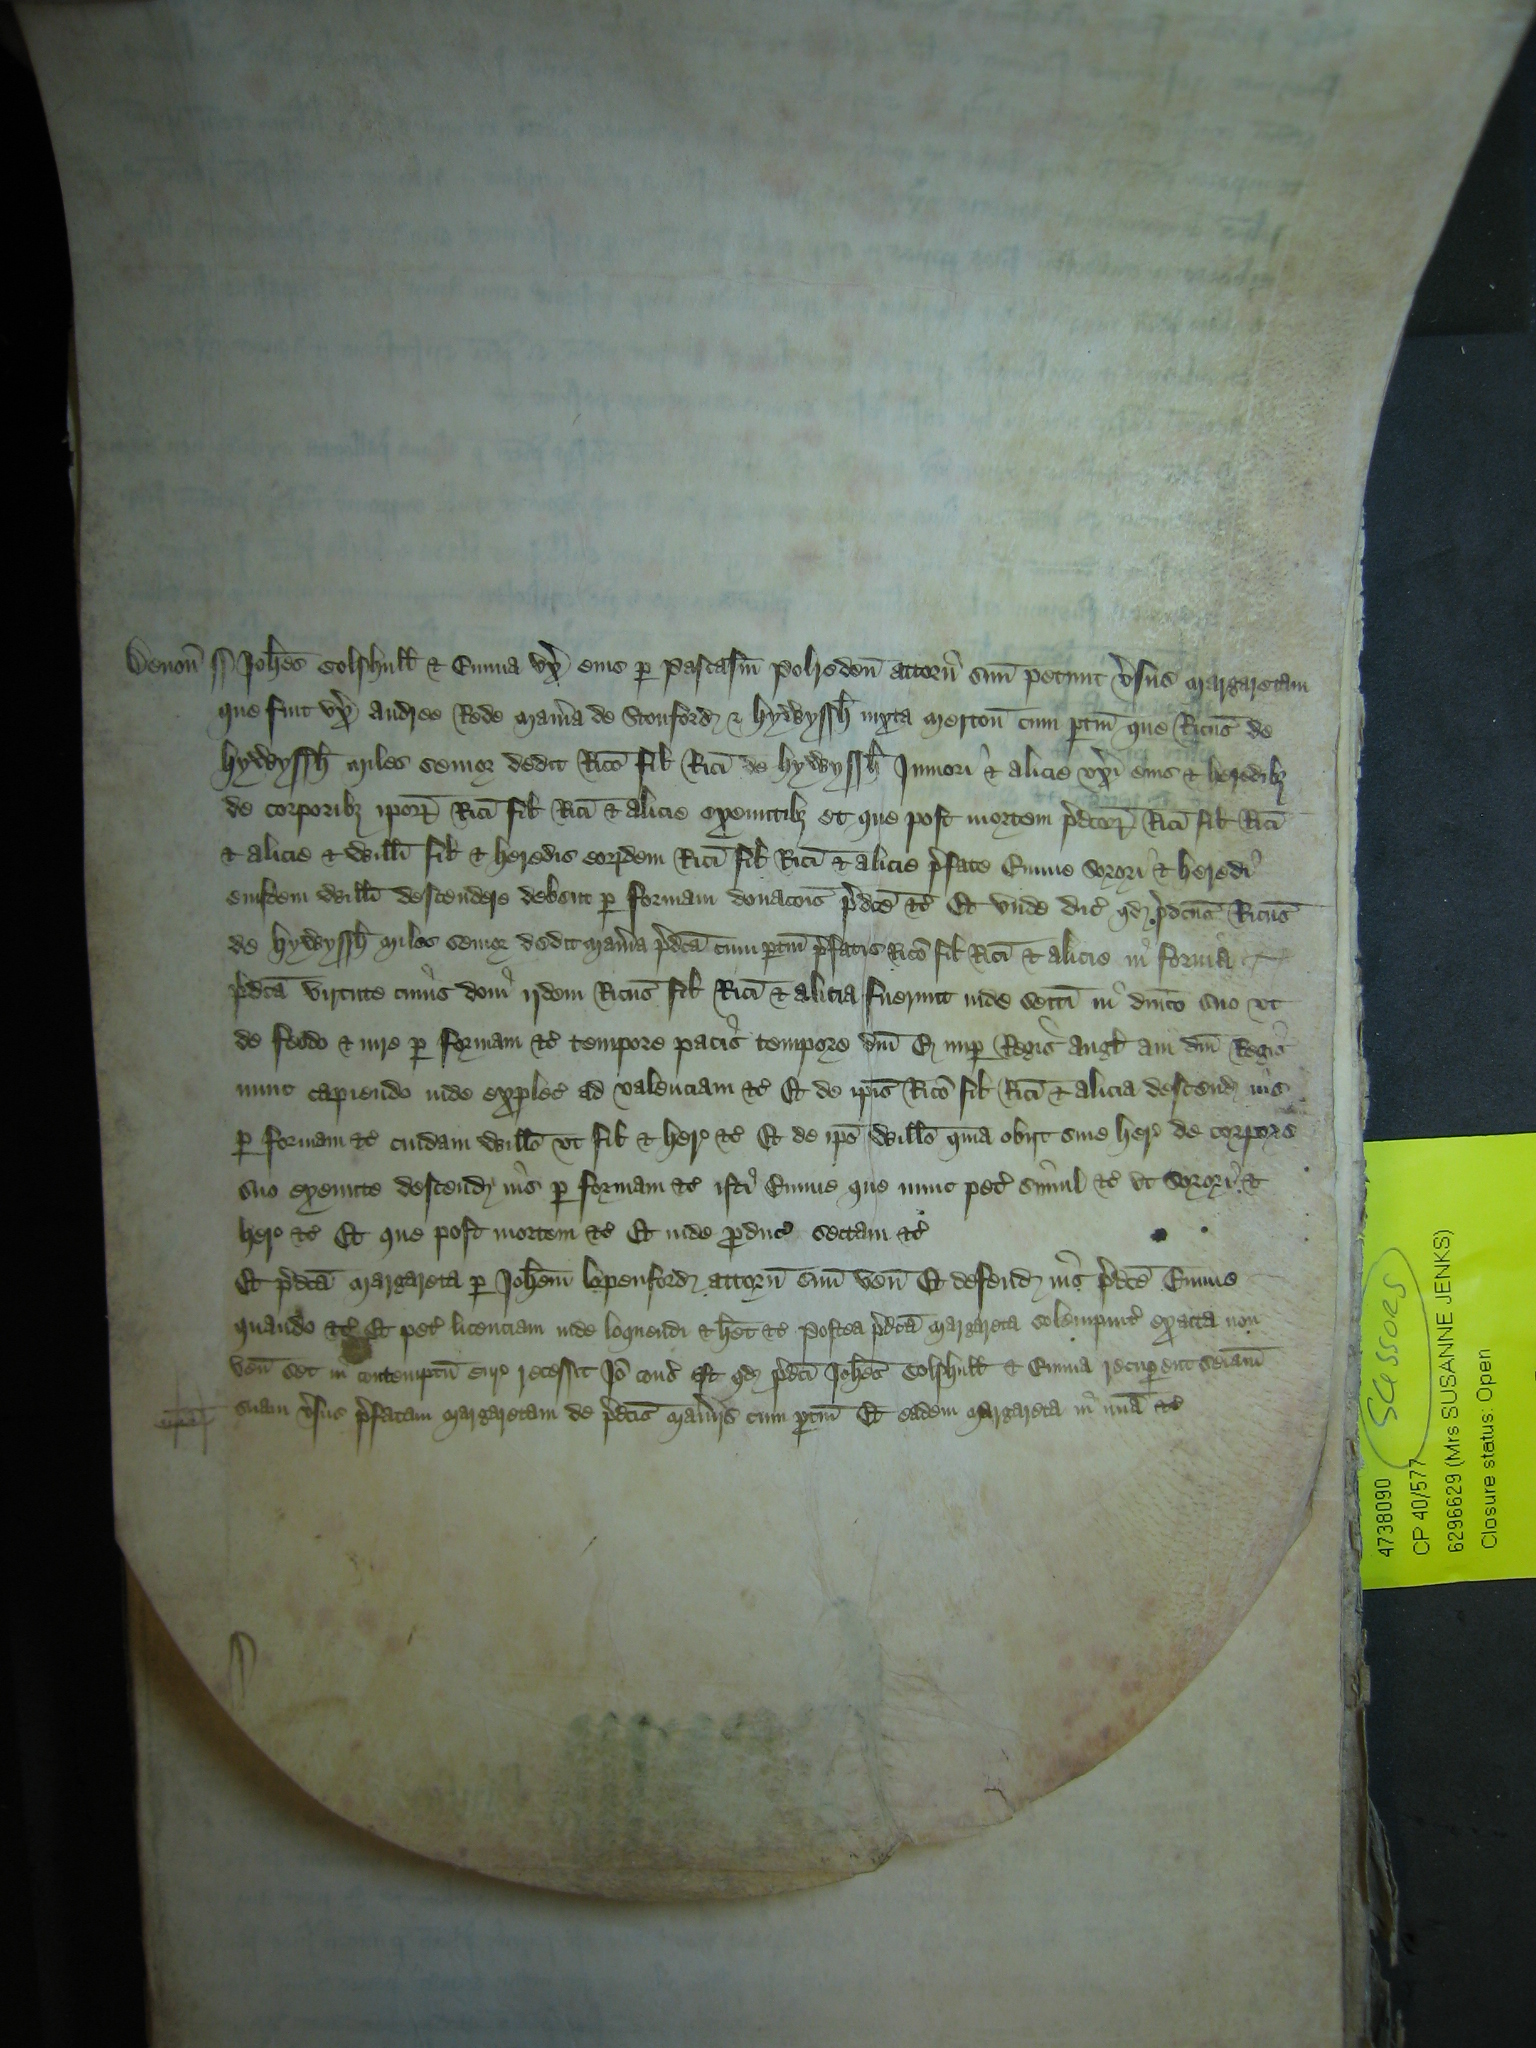 Devoñ ss Joħes Colshuƚƚ & Emma vx̄ eius p Pascasiū Polreden̄ attorn̄ suū petunt v̄sus Margaretam
que fuit vx̄ Andree Rede Man̄ia de Stouford & Hywyssħ iuxta Merton̄ cum ptiñ que Ricus de
Hywyssħ Miles senior dedit Rico fiƚ Rici de Hywyssħ Juniori & Alicie vxi eius & heredibȝ
de corporibȝ ipor Rici fiƚ Rici & Alicie exeuntibȝ et que post mortem p̄dcor Rici fiƚ Rici
& Alicie & Wiƚƚi fiƚ & heredis eordem Rici fiƚ Rici & Alicie p̄fate Emme sorori & heredi
eiusdem Wiƚƚi descendere debent p formam donacois p̄dce &c̄ Et vnde dic̄ qd p̄dcus Ricus
de Hywyssħ Miles senior dedit Man̄ia p̄dca cum ptiñ p̄fatis Rico fiƚ Rici & Alicie in forma
p̄dca virtute cuius doni ijdem Ricus fiƚ Rici & Alicia fuerunt inde seiti in dn̄ico suo vt
de feodo & iure p formam &c̄ tempore pacis tempore dn̄i E nup Regis Angƚ aui dn̄i Regis
nunc capiendo inde explec̄ ad valenciam &c̄ Et de ip̄is Rico fiƚ Rici & Alicia descend ius
p formam &c̄ cuidam Wiƚƚo vt fiƚ & her̄ &c̄ Et de ip̄o Wiƚƚo q̄ia obijt sine her̄ de corpore
suo exeunte descend ius p formam &c̄ isti Emme que nunc pet̄ simul &c̄ vt sorori &
her̄ &c̄ Et que post mortem &c̄ Et inde pduc̄ sectam &c̄
Et p̄dca Margareta p Joħem Lopenford attorñ suū ven̄ Et defend ius p̄dce Emme
quando &c̄ Et pet̄ licenciam inde loquendi & het &c̄ Postea p̄dca Margareta solempnit̄ exacta non
ven̄ set in contemptū cur̄ recessit Jo cons̄ est qd p̄dci Joħes Colshuƚƚ & Emma recupent seiam̄
suam v̄sus p̄fatam Margaretam de p̄dcis Man̄ijs cum ptiñ Et eadem Margareta in mīa &c̄
mīa
4738090
Scissors
CP 40/577
6296629 (Mrs SUSANNE JENKS)
Closure status: Open